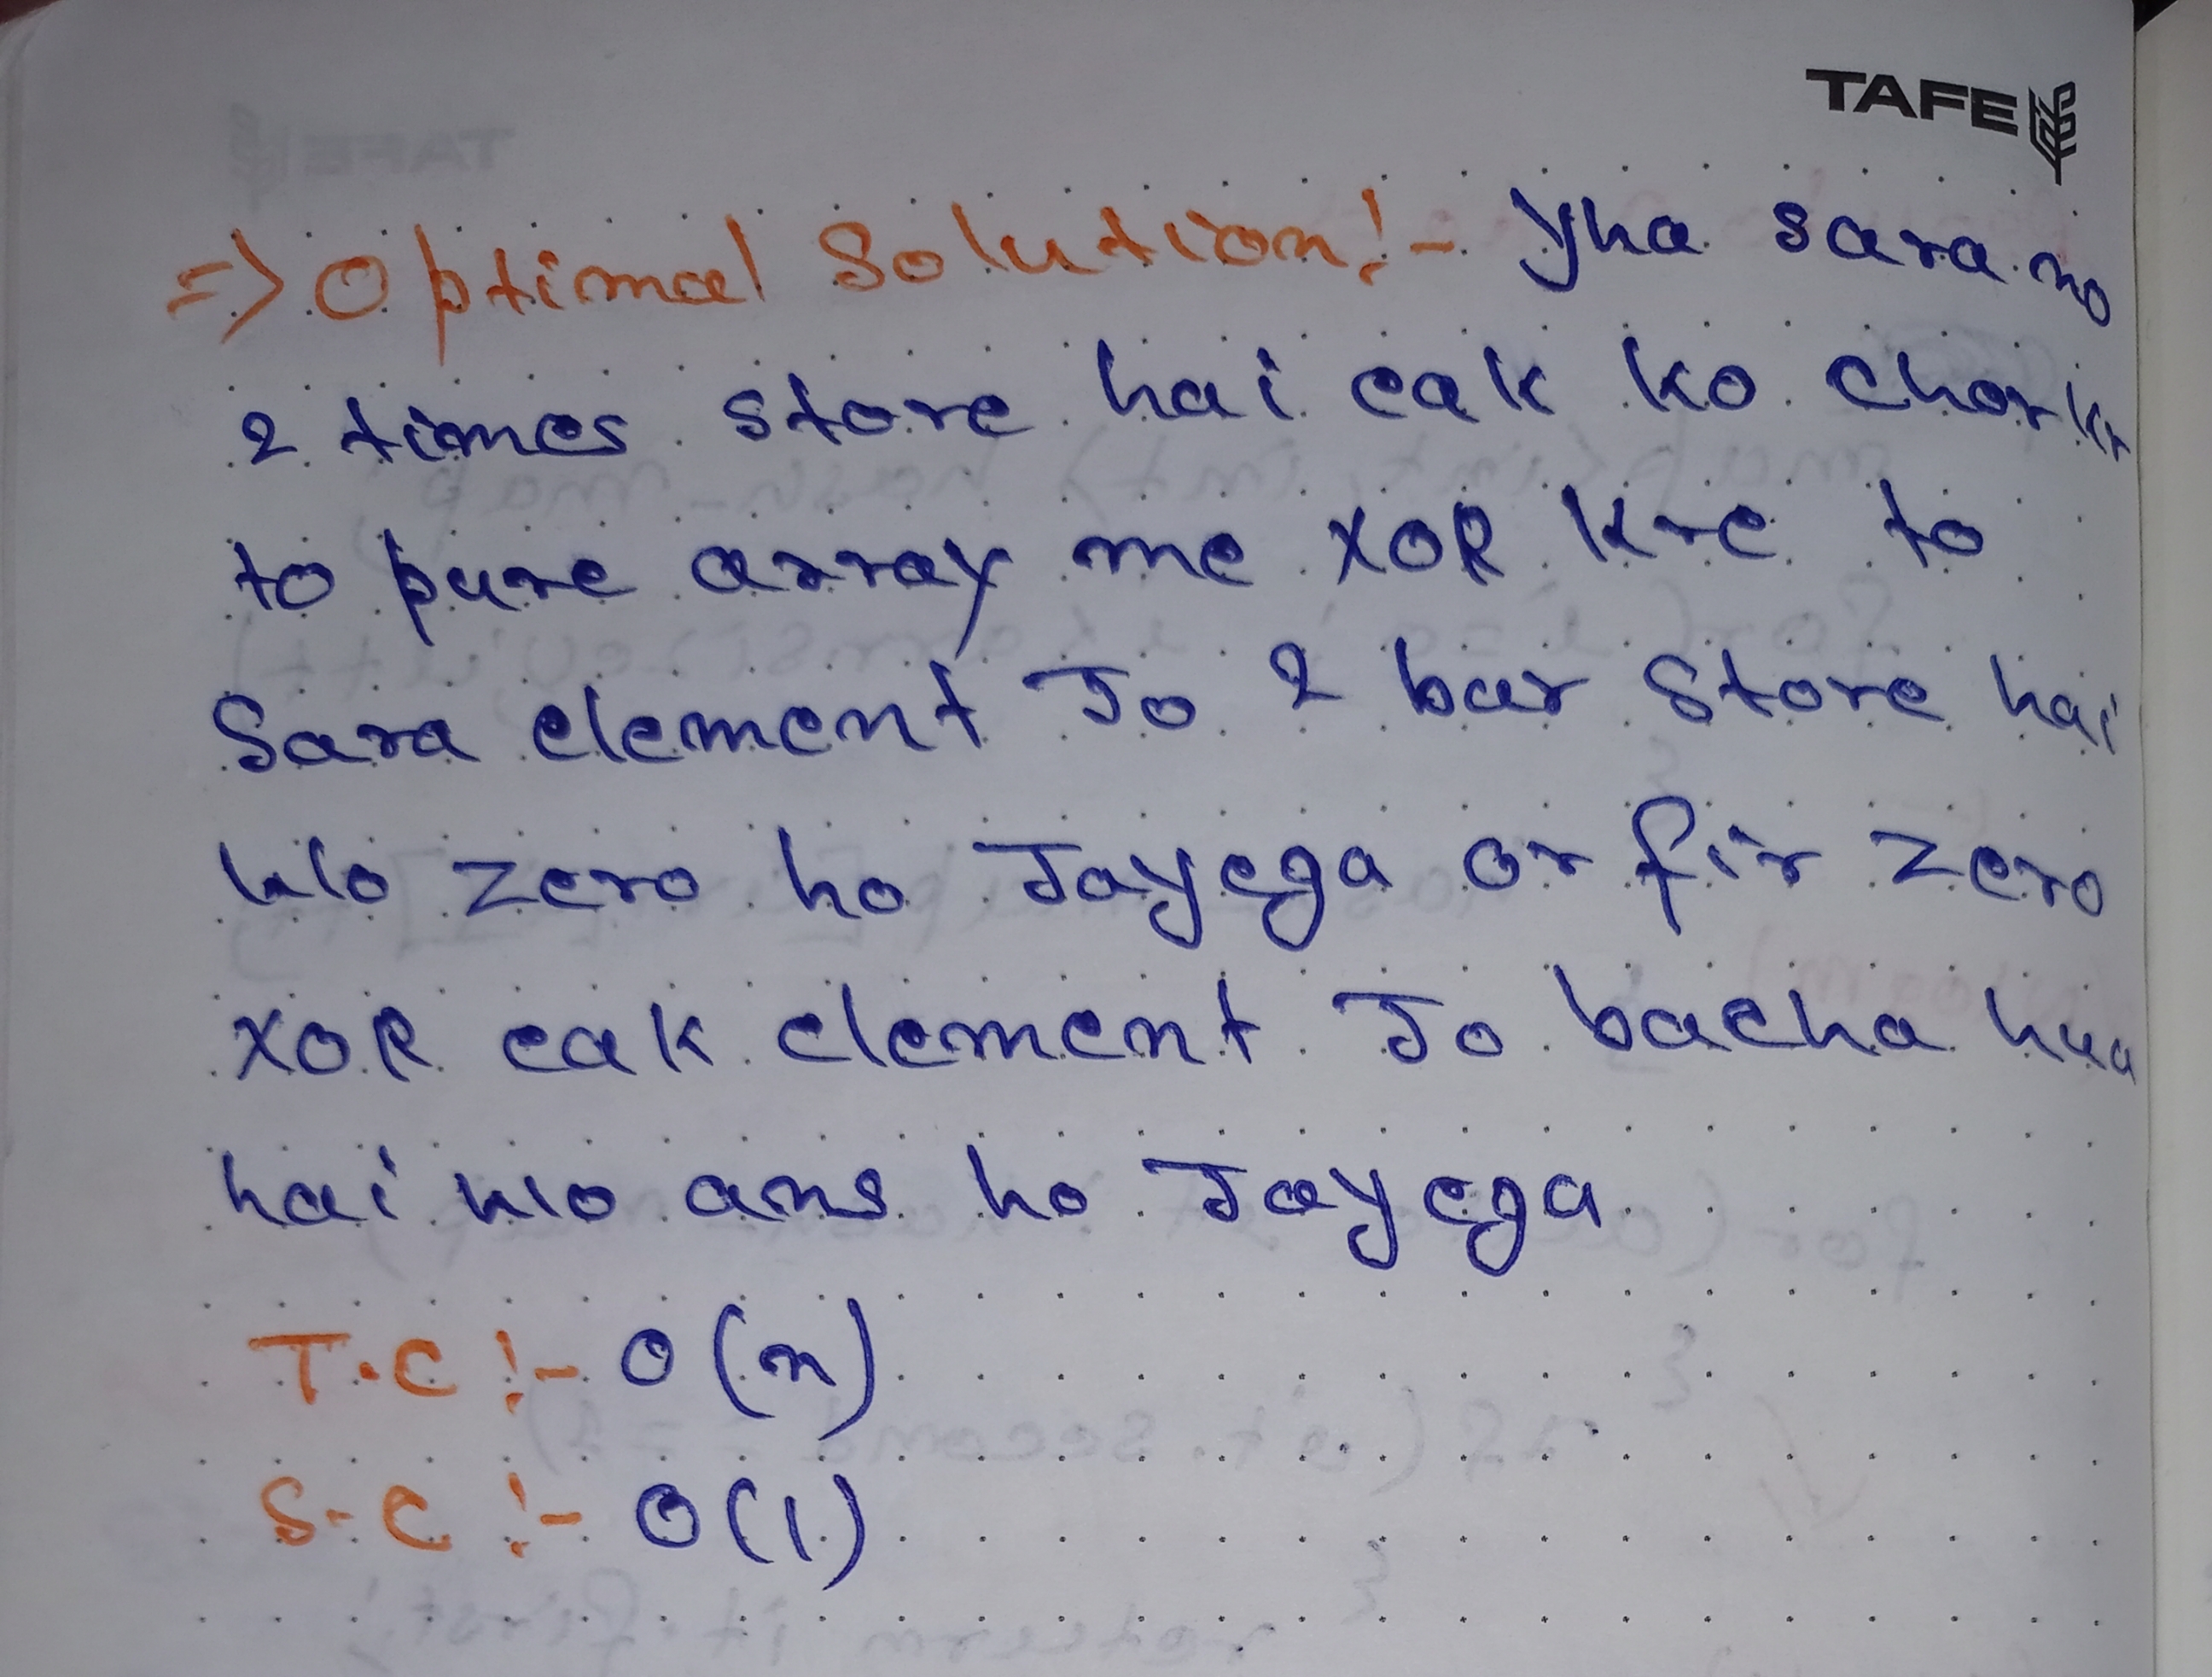 TAFE
=> Optimal Solution :- Yha sara no
2 times store hai eak ko chorkr
to pure array me XOR kre to
Sara element Jo 2 bar Store hai
wo zero ho Jayega or fir zero
XOR eak element Jo bacha hua
hai wo ans ho Jayega
T.C :- O(n)
S.C :- O(1)